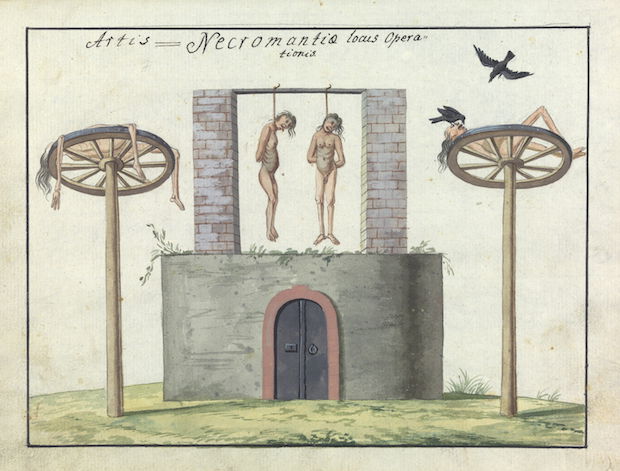 Artis = Necromantiæ locus Opera=
tionis.